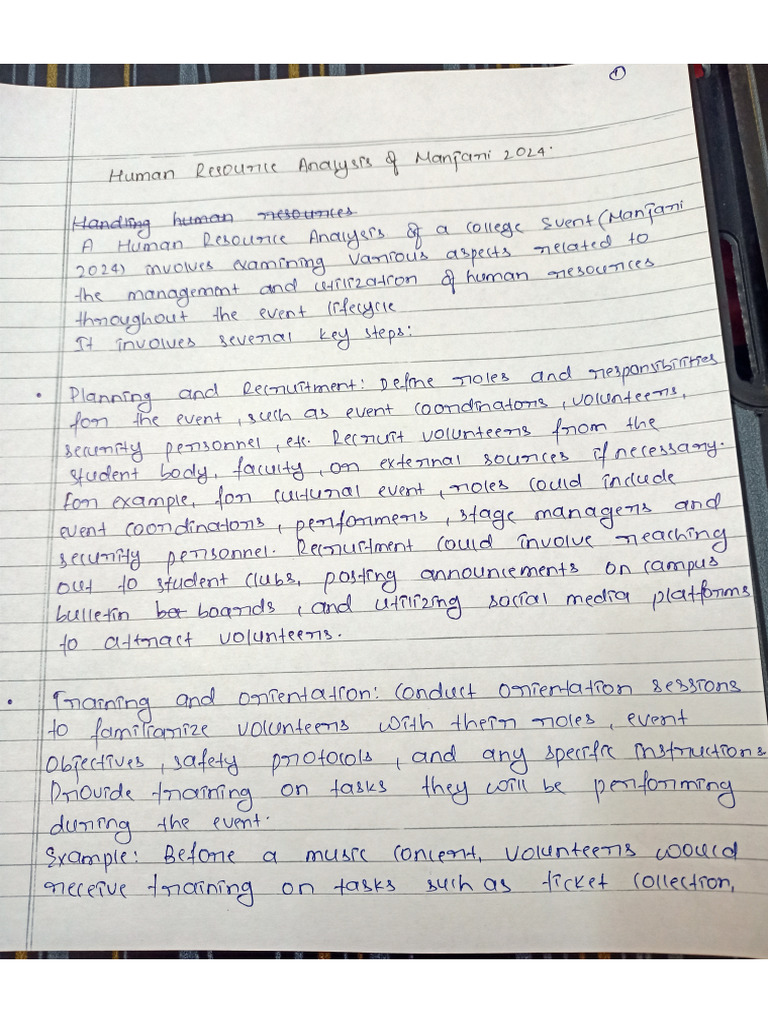 ①
Human Resource Analysis of Manjani 2024.
Handling human resources
A Human Resource Analysis of a college Event (Manjani
2024) involves examining various aspects related to
the management and utilization of human resources
throughout the event lifecycle
It involves several key steps:
• Planning and Recruitment: Define roles and responsibilities
for the event, such as event coordinators, volunteers,
security personnel, etc. Recruit volunteers from the
student body, faculty, or external sources if necessary.
For example, for cultural event, roles could include
event coordinators, performers, stage managers and
security personnel. Recruitment could involve reaching
out to student clubs, posting announcements on campus
bulletin bor boards, and utilizing social media platforms
to attract volunteers.
• Training and orientation: Conduct orientation sessions
to familiarize volunteers with their roles, event
Objectives, safety protocols, and any specific instructions
Provide training on tasks they will be performing
during the event.
Example: Before a music concert, volunteers would
receive training on tasks such as ticket collection,